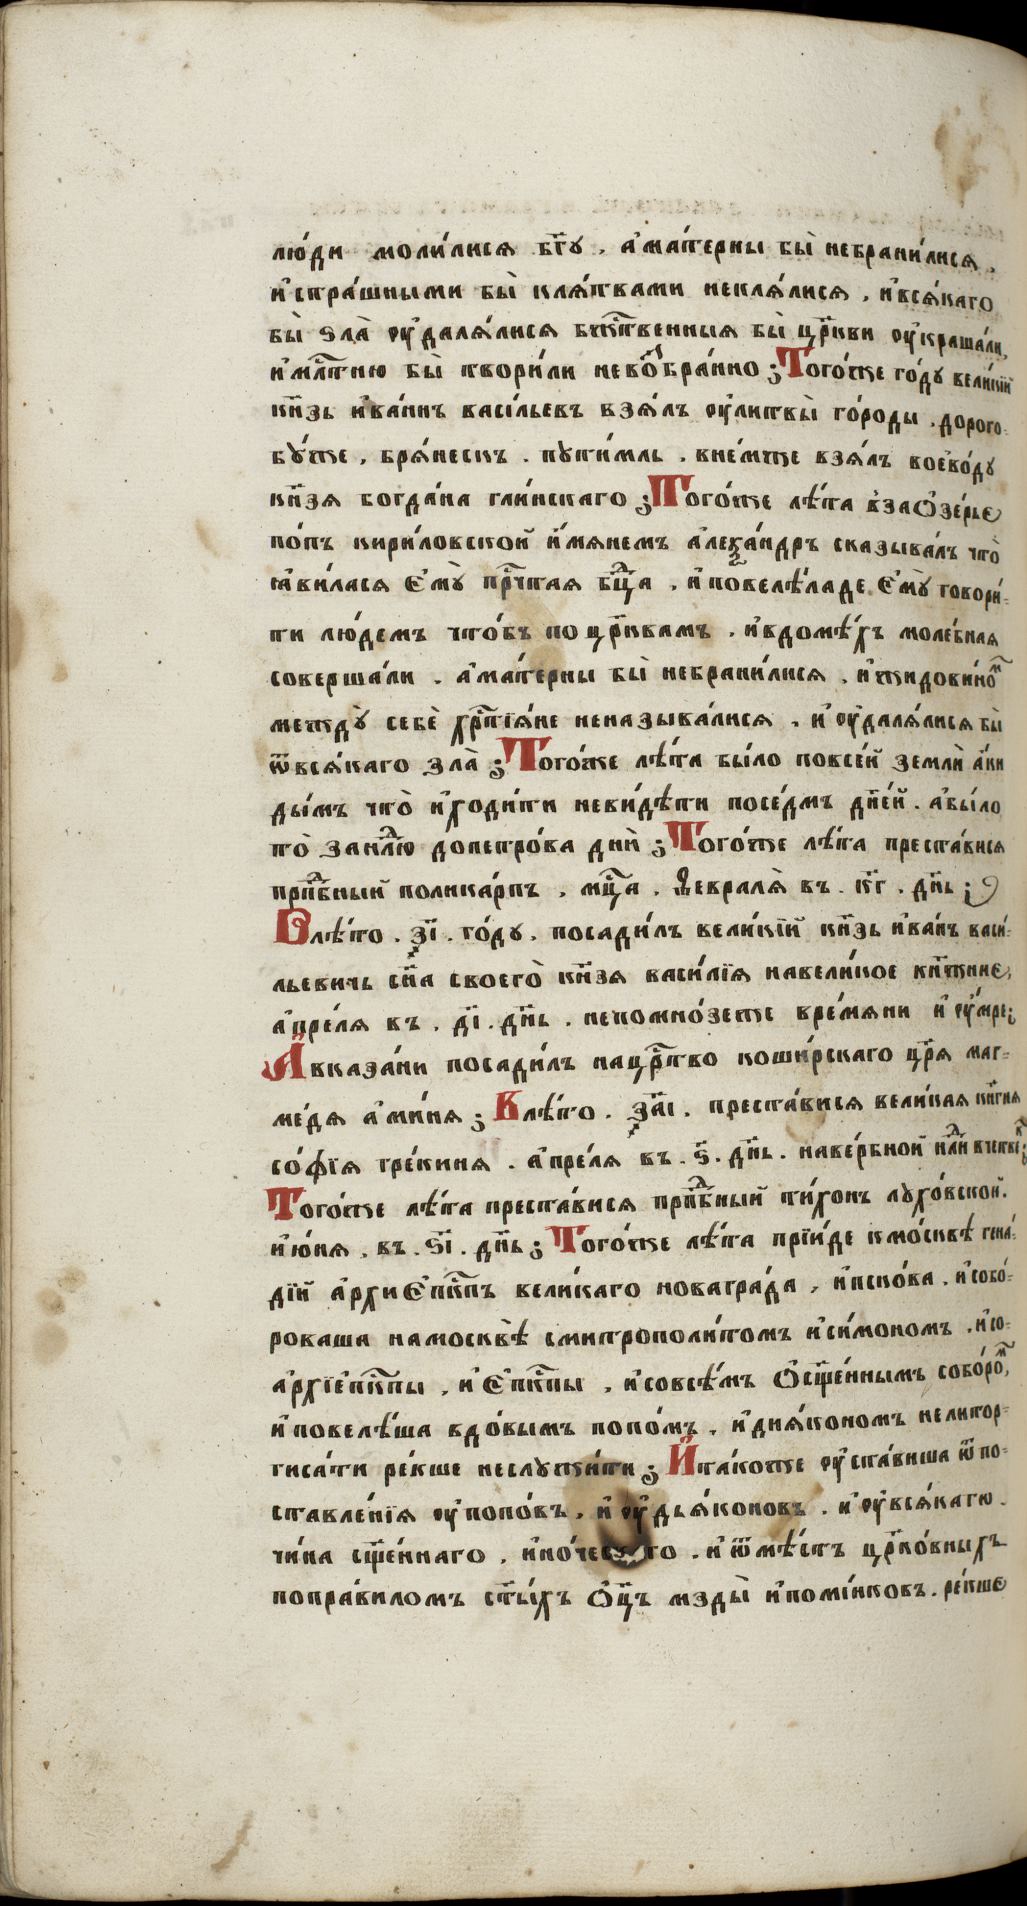 лю́ди моли́лися бг҃у , а҆ма́терны бы̀ небрани́лися ,
и҆стра́шными бы̀ кля́твами некля́лися , и҆вся́каго
бы̀ ѕла̀ ᲂу҆даля́лися бж҃твенныя бы̀ цр҃кви ᲂу҆краша́ли,
и҆мл҃тню бы̀ твори́ли нево́збра́нно ; Того́же го́ду вели́кїй
кн҃зь и҆ва́нъ васи́льевъ взя́лъ ᲂу҆литвы̀ го́роды . дорого-
бу́же , бря́нескъ . пути́мль . вне́мже взя́лъ воево́ду
кн҃зя богда́на гли́нскаго ; Того́же лѣ́та в҆заѻ҆зе́рьє
по́пъ кири́ловской и҆́мянемъ а҆леѯа́ндръ сказыва́лъ что̀
ꙗ҆ви́лася є҆мꙋ̀ прⷭ҇чтая бцⷣа , и҆повелѣ́ладе є҆мꙋ̀ говори́-
ти лю́демъ что́бъ поцр҃квамъ . и҆вдомѣ́хъ моле́бная
соверша́ли . а҆ма́терны бы̀ небрани́лися . и҆жидови́номъ
между̀ себѐ хрⷭ҇тїя́не неназыва́лися , и҆ ᲂу҆даля́лися бы̀
ѿвся́каго зла̀ ; Того́же лѣ́та бы́ло повсе́й землѝ а҆́ки
ды́мъ что̀ и҆ходи́ти неви́дѣти посе́дмъ дн҃е́й . а҆бы́ло
то̀ занⷣлю допетро́ва днѝ ; Того́же лѣ́та преста́вися
прпⷣбный полика́рпъ . мцⷭ҇а . ѳеврала̀ въ . кг҃ . дн҃ь ;
Влѣ́то . ҂зі҃ . го́ду . посади́лъ вели́кїй кн҃зь и҆ва́нъ васи́-
льевичь сн҃а своего̀ кн҃зя васи́лїя навели́кое кн҃жние,
а҆пре́ля въ . ді҃ . дн҃ь . непомно́зеже вре́мяни и҆ ᲂу҆́мре ;
А҆вказа́ни посади́лъ нацрⷭ҇тво коши́рскаго цр҃я маг-
ме́дя а҆ми́ня ; Влѣ́то . ҂заі҃ . преста́вися вели́кая кн҃гня
со́фїя гре́киня . а҆пре́ля въ . ѕ҃ . дн҃ь . наве́рбной нⷣли вчетвⷦ҇ .
Того́же лѣ́та преста́вися прпⷣбный ти́хонъ лухо́вской .
и҆ю́ня . въ . ѕі҃ . дн҃ь ; Того́же лѣ́та прїи́де кмо́сквѣ гена́-
дїй а҆рхиє҆пⷭ҇кпъ вели́каго новагра́да , и҆пско́ва . и҆собо́-
роваша намосквѣ̀ смитрополи́томъ и҆си́мономъ . и҆со-
а҆рхїепⷭ҇кпы , и҆ є҆пⷭ҇кпы , и҆совсѣ́мъ ѻ҆сщ҃е́ннымъ собо́ромъ,
и҆повелѣ́ша вдо́вымъ попо́мъ . и҆дия́кономъ нелитор-
гиса́ти ре́кше неслужи́ти ; И҆та́коже ᲂу҆ста́виша ѿпо-
ставле́нїя ᲂу҆попо́въ . и҆ ᲂу҆дья́коновъ . и҆ ᲂу҆вся́каго
чи́на сщ҃е́ннаго , и҆но́ческаго . и҆ ѿмѣ́стъ цр҃ко́вныхъ
попра́виломъ ст҃ы́хъ ѻ҆ц҃ъ мзды̀ и҆помі́нковъ . ре́кше